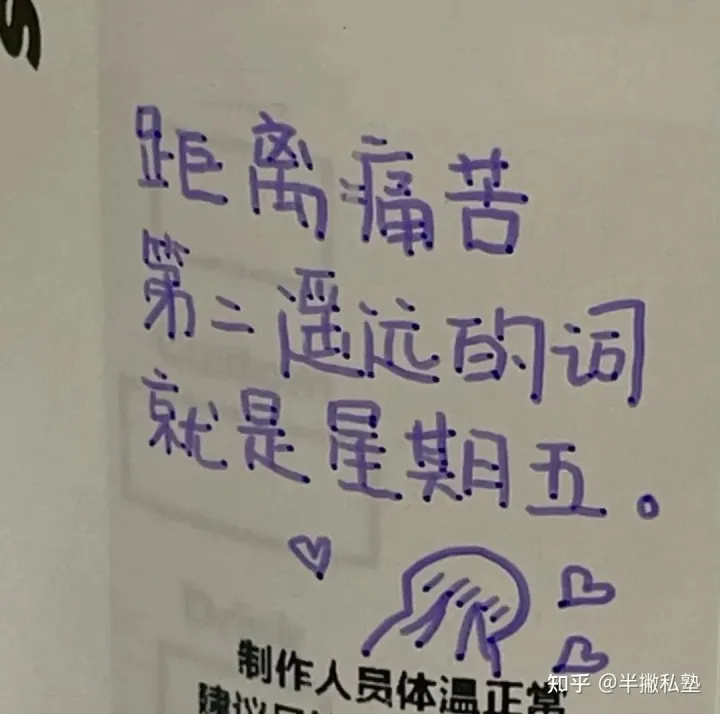 距离痛苦
第二遥远的词
就是星期五。
制作人员体温正常
知乎 @半撇私塾